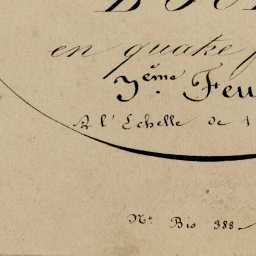 en quatre f
3ème Feu
A l'Echelle de 1
No Bis 388